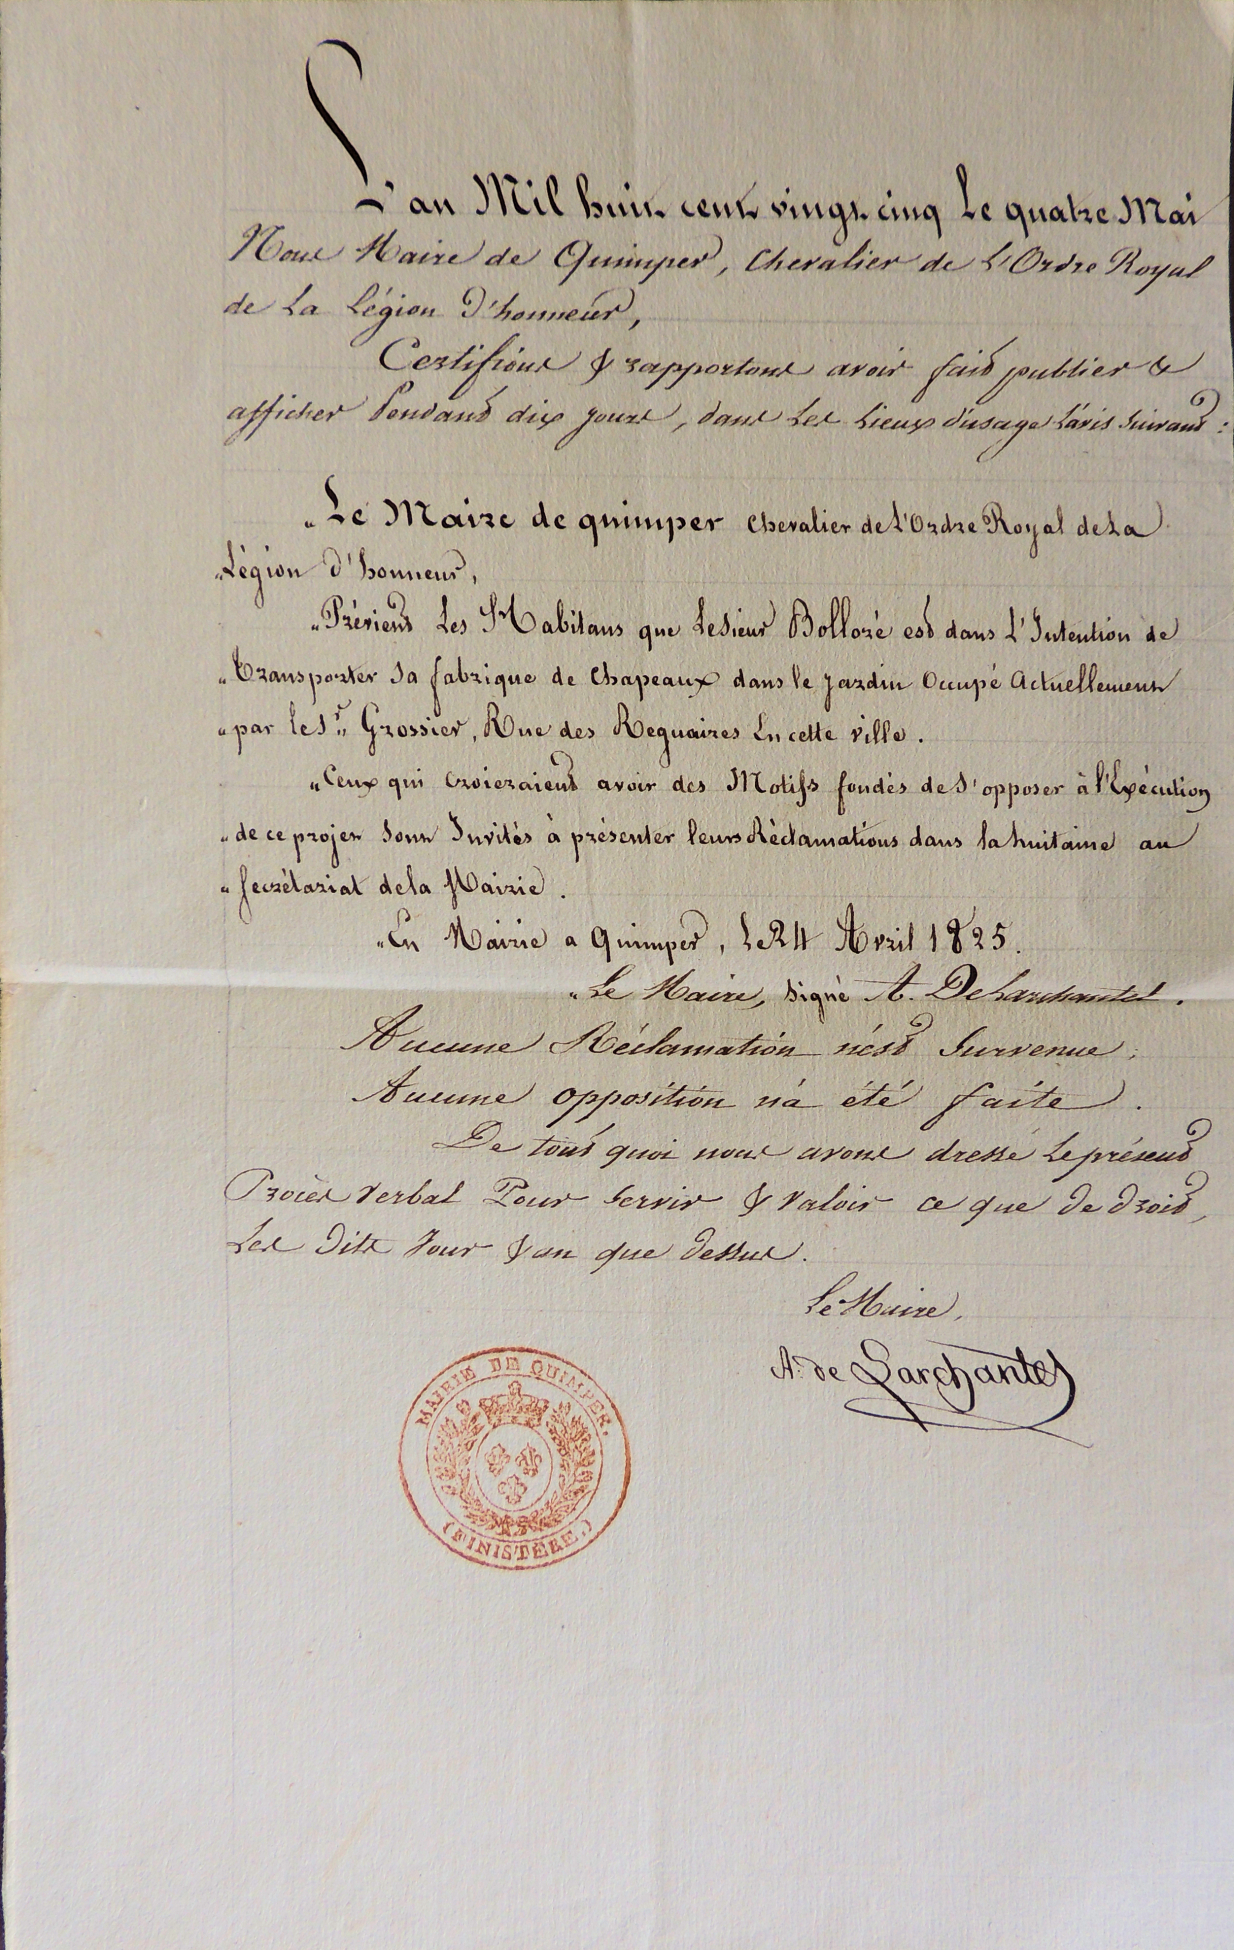 L'an Mil huit cent vingt cinq Le quatre Mai
Nous Maire de Quimper, Chevalier de L'Ordre Royal
de La Légion d'honneur,
Certifions & rapportons avoir fait publier &
afficher Pendant dix jours, dans Les Lieux d'usage L'avis Suivant :
„Le Maire de quimper Chevalier de L'Ordre Royal de La
„Légion d'honneur,
„Prévient Les Habitans que Le Sieur Bolloré est dans L'Intention de
„Transporter Sa fabrique de Chapeaux dans le Jardin Occupé Actuellement
„par le Sr„ Grossier, Rue des Reguaires En cette ville.
„Ceux qui croieraient avoir des Motifs fondés de S'opposer à l'Exécution
„de ce projet Sont Invités à présenter leurs Réclamations dans la huitaine au
„Secrétariat de la Mairie.
„En Mairie a Quimper, Le 24 Avril 1825.
„Le Maire, Signé A. De Larchantel.
Aucune Réclamation n'est Survenue,
Aucune opposition n'a été faite.
De tout quoi nous avons dressé Le présent
Procès Verbal Pour Servir & Valoir ce que de droit,
Les dits Jour & an que dessus.
Le Maire,
A. de Larchantel
MAIRIE DE QUIMPER.
(FINISTÈRE.)